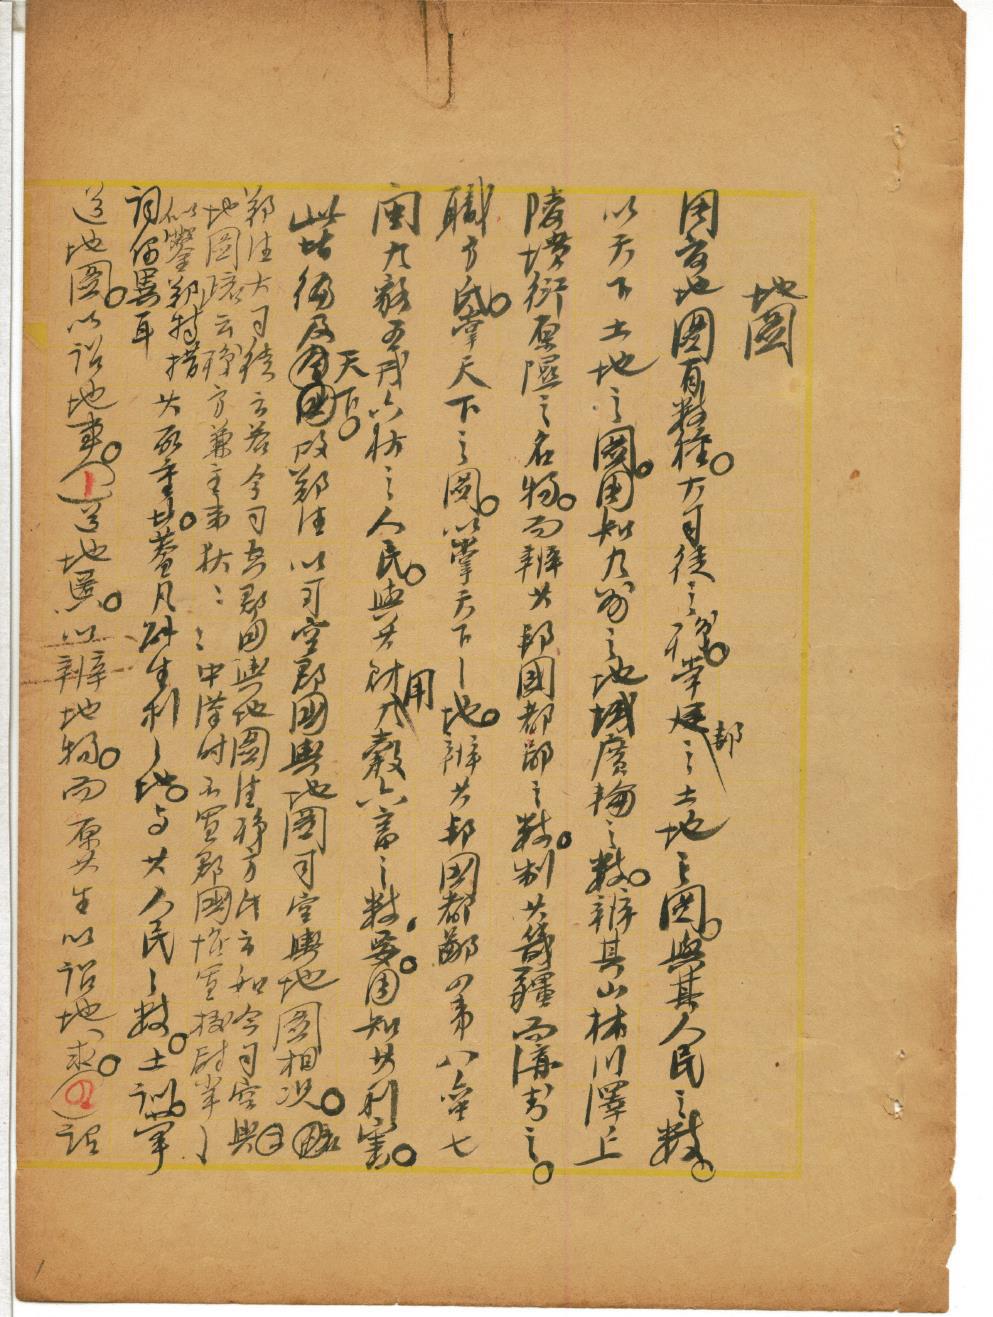 地圖
周官地圖有數種。大司徒之職。掌建邦之土地之圖。與其人民之數。
以天下土地之圖。周知九州之地域廣輪之數。辨其山林川澤丘
陵墳衍原隰之名物。而辨其邦國都鄙之數。制其畿疆而溝封之。
職方氏。掌天下之圖。以掌天下之地。辨其邦國都鄙四夷八蠻七
閩九貉五戎六狄之人民。與其財用九穀六畜之數要。周知其利害。
此皆徧及天下。故鄭注以司空郡國輿地圖
鄭注大司徒云若今司空郡國輿地圖注職方氏云如今司空輿
地圖 云職方兼主夷狄 中漢時 置郡國 置校尉掌之
似鑿鄭特措
詞偶異耳 其所重 。蓋凡 生利之地。與其人民之數。土訓。掌
道地圖。以詔地事。道地慝。以辨地物。而原其生以詔地求。